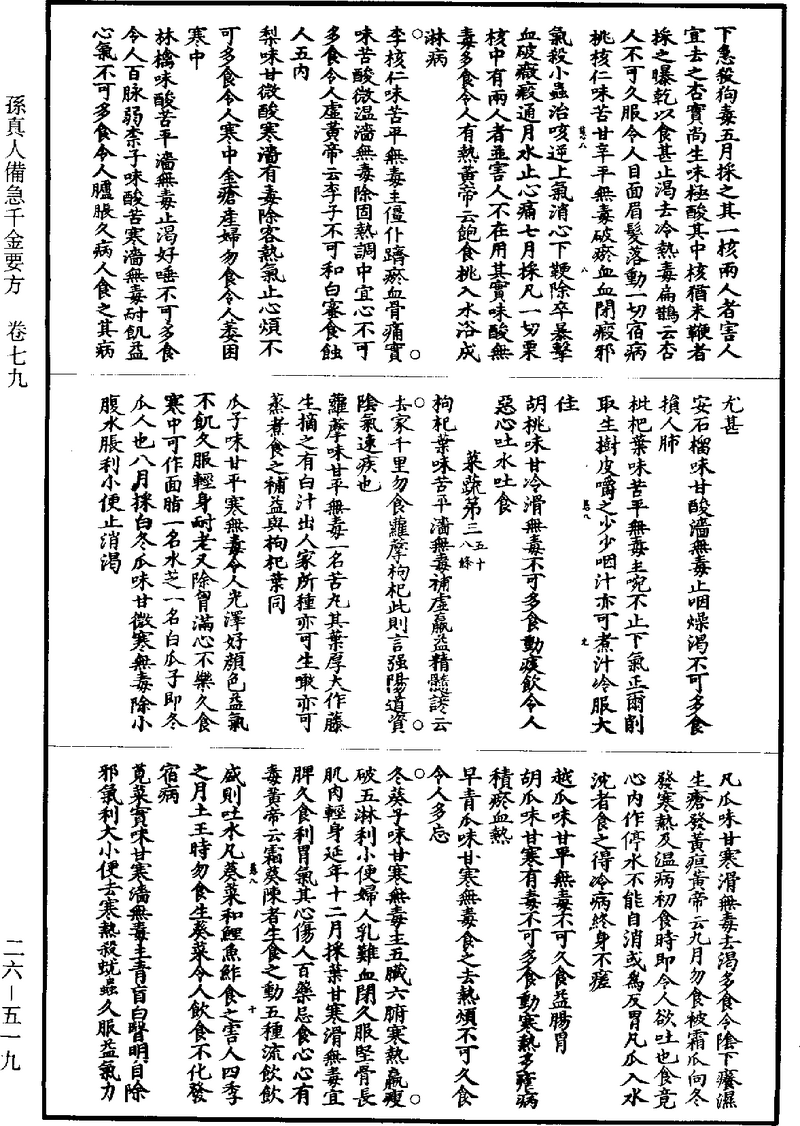 下急殺狗毒五月採之其一核兩人者害人
宜去之杏實尚生味極酸其中核猶未鞕者
採之曝乾以食甚止渴去冷熱毒扁鵲云杏
人不可久服令人目盲眉髮落動一切宿病
桃核仁味苦甘辛平無毒破瘀血血閉瘕邪
氣殺小蟲治咳逆上氣消心下鞕除卒暴擊
血破癥瘕通月水止心痛七月採凡一切果
核中有兩人者並害人不在用其實味酸無
毒多食令人有熱黃帝云飽食桃入水浴成
淋病
李核仁味苦平無毒主僵仆躋瘀血骨痛實
味苦酸微溫濇無毒除固熱調中宜心不可
多食令人虛黃帝云李子不可和白蜜食蝕
人五內
梨味甘微酸寒濇有毒除客熱氣止心煩不
可多食令人寒中金瘡產婦勿食令人萎困
寒中
林檎味酸苦平濇無毒止渴好唾不可多食
令人百脉弱柰子味酸苦寒濇無毒耐飢益
心氣不可多食令人臚脹久病人食之其病
尤甚
安石榴味甘酸濇無毒止咽燥渴不可多食
損人肺
枇杷葉味苦平無毒主啘不止下氣正爾削
取生樹皮嚼之少少咽汁亦可煮汁冷服大
佳
胡桃味甘冷滑無毒不可多食動痰飲令人
惡心吐水吐食
菜蔬第三五十八條
枸杞葉味苦平濇無毒補虛羸益精髓諺云
去家千里勿食蘿摩枸杞此則言强陽道資
陰氣速疾也
蘿摩味甘平無毒一名苦丸其葉厚大作藤
生摘之有白汁出人家所種亦可生噉亦可
蒸煮食之補益與枸杞葉同
瓜子味甘平寒無毒令人光澤好顏色益氣
不飢久服輕身耐老又除胷滿心不樂久食
寒中可作面脂一名水芝一名白瓜子即冬
瓜人也八月採白冬瓜味甘微寒無毒除小
腹水脹利小便止消渴
凡瓜味甘寒滑無毒去渴多食令陰下癢濕
生瘡發黃疸黃帝云九月勿食被霜瓜向冬
發寒熱及溫病初食時即令人欲吐也食竟
心內作停水不能自消或為反胃凡瓜入水
沈者食之得冷病終身不瘥
越瓜味甘平無毒不可久食益腸胃
胡瓜味甘寒有毒不可多食動寒熱多瘧病
積瘀血熱
早青瓜味甘寒無毒食之去熱煩不可久食
令人多忘
冬葵子味甘寒無毒主五臟六腑寒熱羸瘦
破五淋利小便婦人乳難血閉久服堅骨長
肌肉輕身延年十二月採葉甘寒滑無毒宜
脾久食利胃氣其心傷人百藥忌食心心有
毒黃帝云霜葵陳者生食之動五種流飲飲
盛則吐水凡葵菜和鯉魚鮓食之害人四季
之月土王時勿食生葵菜令人飲食不化發
宿病
莧菜實味甘寒濇無毒主青盲白瞖明目除
邪氣利大小便去寒熱殺蚘蟲久服益氣力
孫真人備急千金要方 卷七九
二六—五一九